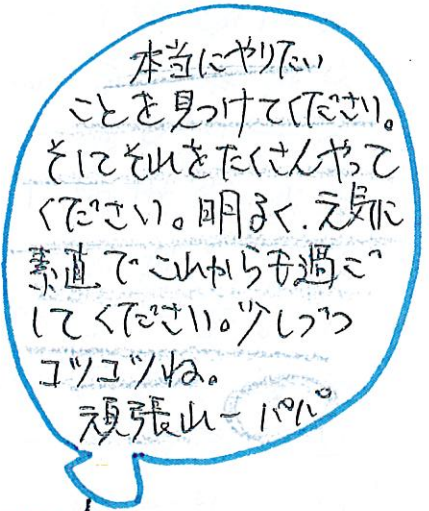 本当にやりたい
ことを見つけてください。
そしてそれをたくさんやって
ください。明るく、元気に
素直でこれからも過ご
してください。少しづつ
コツコツね。
頑張れー パパ